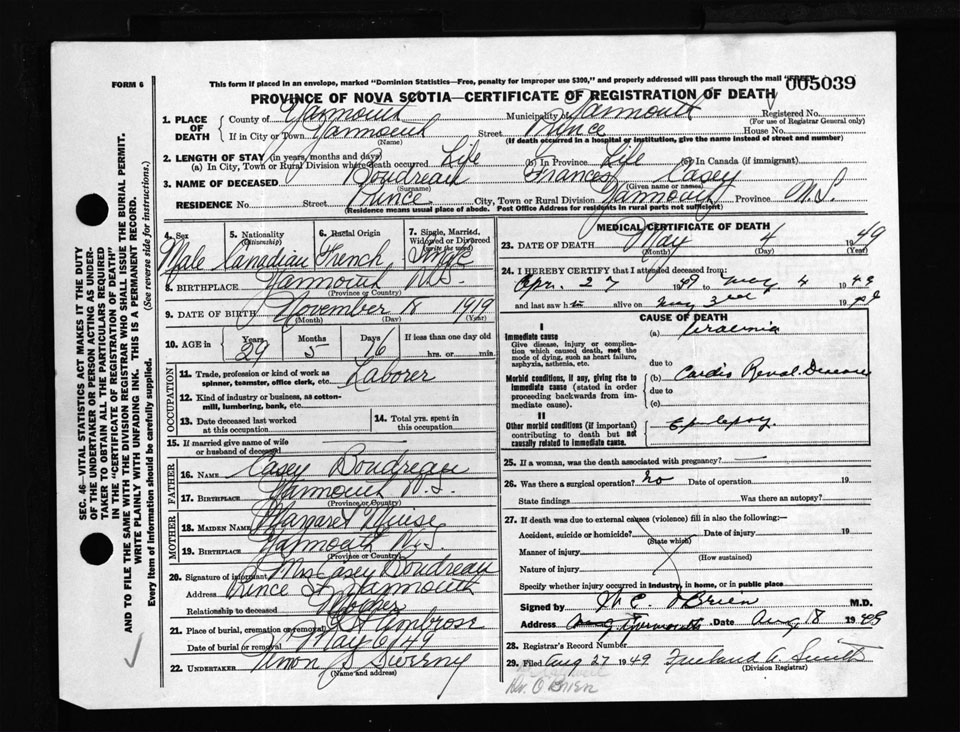 FORM 6
This form if placed in an envelope, marked "Dominion Statistics—Free, penalty for improper use $300," and properly addressed will pass through the mail "FREE"
005039
PROVINCE OF NOVA SCOTIA—CERTIFICATE OF REGISTRATION OF DEATH
1. PLACE OF DEATH County of Yarmouth Municipality of Yarmouth Registered No.
(For use of Registrar General only)
If in City or Town Yarmouth Street Prince House No.
(Name) (If death occurred in a hospital or institution, give the name instead of street and number)
2. LENGTH OF STAY (in years/months and days)
(a) In City, Town or Rural Division where death occurred Life (b) In Province Life (c) In Canada (if immigrant)
3. NAME OF DECEASED Boudreau Frances Casey
(Surname) (Given name or names)
RESIDENCE No. Street Prince City, Town or Rural Division Yarmouth Province N.S.
(Residence means usual place of abode. Post Office Address for residents in rural parts not sufficient)
4. Sex 5. Nationality (Citizenship) 6. Racial Origin 7. Single, Married, Widowed or Divorced (write the word)
Male Canadian French Single
8. BIRTHPLACE Yarmouth N.S.
(Province or Country)
9. DATE OF BIRTH November 18 1919
(Month) (Day) (Year)
10. AGE in Years Months Days If less than one day old
29 5 16 hrs. or min.
OCCUPATION
11. Trade, profession or kind of work as spinner, teamster, office clerk, etc. Laborer
12. Kind of industry or business, as cotton-mill, lumbering, bank, etc.
13. Date deceased last worked at this occupation
14. Total yrs. spent in this occupation
15. If married give name of wife or husband of deceased
FATHER
16. NAME Casey Boudreau
17. BIRTHPLACE Yarmouth N.S.
MOTHER
18. MAIDEN NAME Margaret Muise
19. BIRTHPLACE Yarmouth N.S.
(Province or Country)
20. Signature of informant Mrs Casey Boudreau
Address Prince St Yarmouth
Relationship to deceased Mother
21. Place of burial, cremation or removal St Ambrose
Date of burial or removal May 6/49
22. UNDERTAKER Vernon S Sweeny
(Name and address)
MEDICAL CERTIFICATE OF DEATH
23. DATE OF DEATH May 4 1949
(Month) (Day) (Year)
24. I HEREBY CERTIFY that I attended deceased from:
Apr. 27 1949 to May 4 1949
and last saw him alive on May 3rd 1949
CAUSE OF DEATH
I
Immediate cause (a) Uraemia
Give disease, injury or complication which caused death, not the mode of dying, such as heart failure, asphyxia, asthenia, etc.
due to
Morbid conditions, if any, giving rise to immediate cause (stated in order proceeding backwards from immediate cause).
(b) Cardio Renal Disease
due to
(c)
II
Other morbid conditions (if important) contributing to death but not causally related to immediate cause.
Epilepsy.
25. If a woman, was the death associated with pregnancy?
26. Was there a surgical operation? no Date of operation 19
State findings Was there an autopsy?
27. If death was due to external causes (violence) fill in also the following:—
Accident, suicide or homicide? Date of injury 19
(State which)
Manner of injury
(How sustained)
Nature of injury
Specify whether injury occurred in industry, in home, or in public place
Signed by W C O'Brien M.D.
Address Yarmouth Date Aug 18 1949
28. Registrar's Record Number
29. Filed Aug 27 1949 Freeland A. Smith
(Division Registrar)
Rev. O'Brien
SEC. 46—VITAL STATISTICS ACT MAKES IT THE DUTY
OF THE UNDERTAKER OR PERSON ACTING AS UNDER-
TAKER TO OBTAIN ALL THE PARTICULARS REQUIRED
IN THE "CERTIFICATE OF REGISTRATION OF DEATH"
AND TO FILE THE SAME WITH THE DIVISION REGISTRAR WHO SHALL ISSUE THE BURIAL PERMIT.
WRITE PLAINLY WITH UNFADING INK. THIS IS A PERMANENT RECORD.
Every item of information should be carefully supplied. (See reverse side for instructions.)